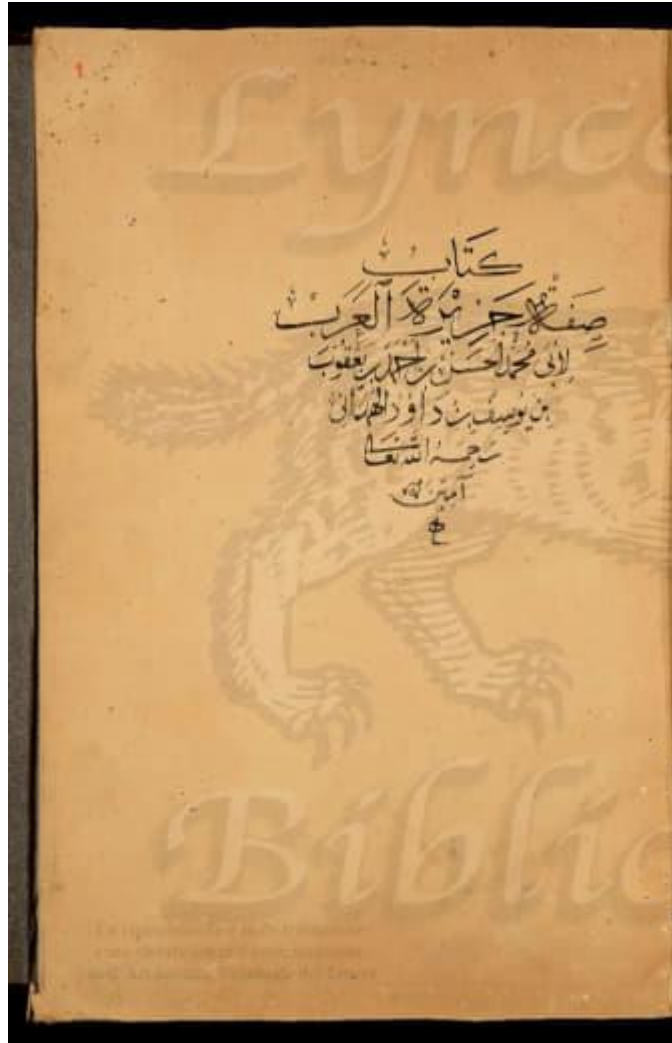 1
Lynce
كتاب
صفة جزيرة العرب
لأبي محمد الحسن بن أحمد بن يعقوب
بن يوسف بن داود الهمداني
رحمه الله تعالى
آمين
Biblio